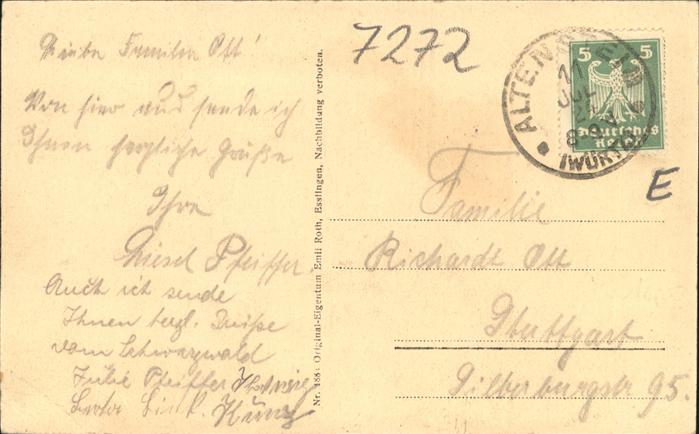 Liebe Familie Ott!
Von hier aus sende ich
Ihnen herzliche Grüße
Ihre
Liesel Pfeiffer.
Auch ich sende
Ihnen herzl. Grüße
vom Schwarzwald
Julie Pfeiffer
Kunz
Original-Eigentum Emil Roth, Esslingen, Nachbildung verboten.
7272
ALTENSTEIG
11
JUL
8-9
(WÜRTT)
5 5
Deutsches
Reich
E
Familie
Richardt Ott
Stuttgart
Silberburgstr 95.